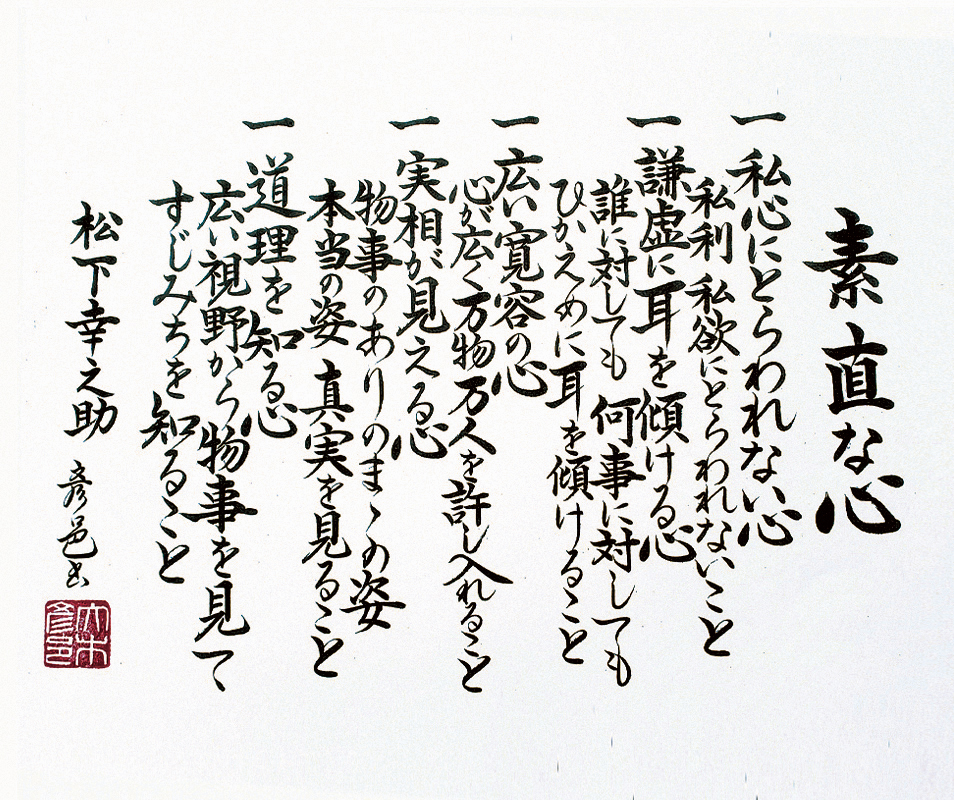 素直な心
一 私心にとらわれない心
私利 私欲にとらわれないこと
一 謙虚に耳を傾ける心
誰に対しても 何事に対しても
ひかえめに耳を傾けること
一 広い寛容の心
心が広く万物万人を許し入れること
一 実相が見える心
物事のありのまゝの姿
本当の姿 真実を見ること
一 道理を知る心
広い視野から物事を見て、
すじみちを知ること
松下幸之助
彦邑書